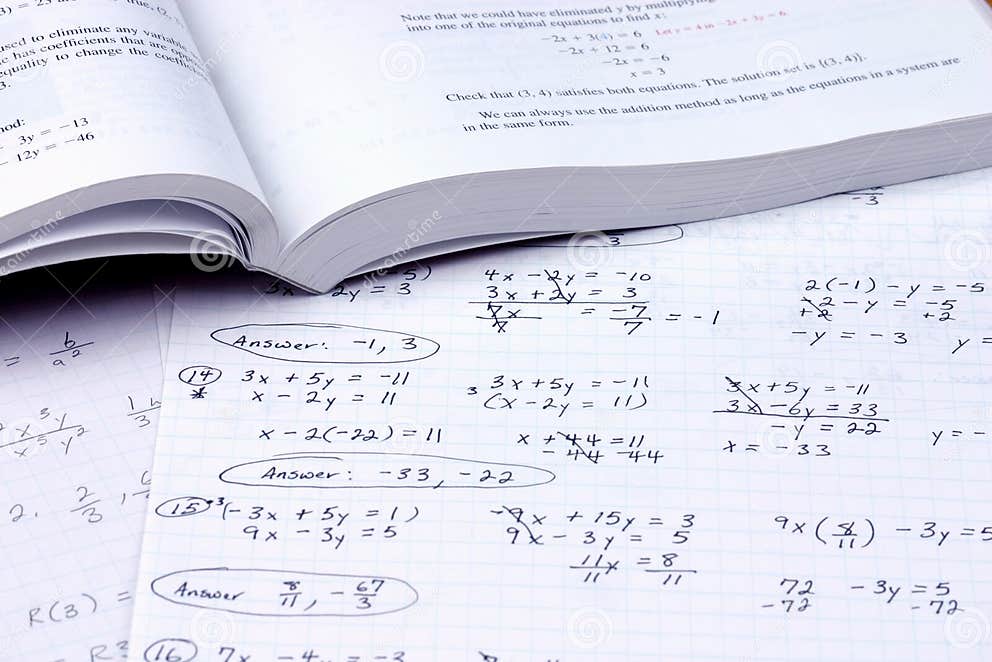 3) = 23 are true.
used to eliminate any variable
has coefficients that are
equality to change the
3.
3y = -13
12y = -46
Note that we could have eliminated y by multiplying
into one of the original equations to find x:
-2x + 3(4) = 6 Let y = 4 in -2x + 3y = 6.
-2x + 12 = 6
-2x = -6
x = 3
Check that (3, 4) satisfies both equations. The solution set is {(3, 4)}.
We can always use the addition method as long as the equations in a system are
in the same form.
-3
3
-5)
3x 2y = 3
4x - 2y = -10
3x + 2y = 3
7x = -7 = -1
7 7
2(-1) - y = -5
-2 - y = -5
+2 +2
-y = -3 y =
Answer: -1, 3
14 3x + 5y = -11
* x - 2y = 11
x - 2(-22) = 11
3x + 5y = -11
3 (x - 2y = 11)
x + 44 = 11
- 44 -44
3x + 5y = -11
3x - 6y = 33
-y = 22
x = -33
y = -
Answer: -33, -22
15 -3(-3x + 5y = 1)
9x - 3y = 5
-9x + 15y = 3
9x - 3y = 5
11x = 8
11 11
9x (8/11) - 3y = 5
72 - 3y = 5
-72 -72
Answer 8/11, -67/3
16 7x - 4y = -3
= b/a²
x³y
x⁵ y²
2. 2/3,
R(3) =
R²
dreamstime